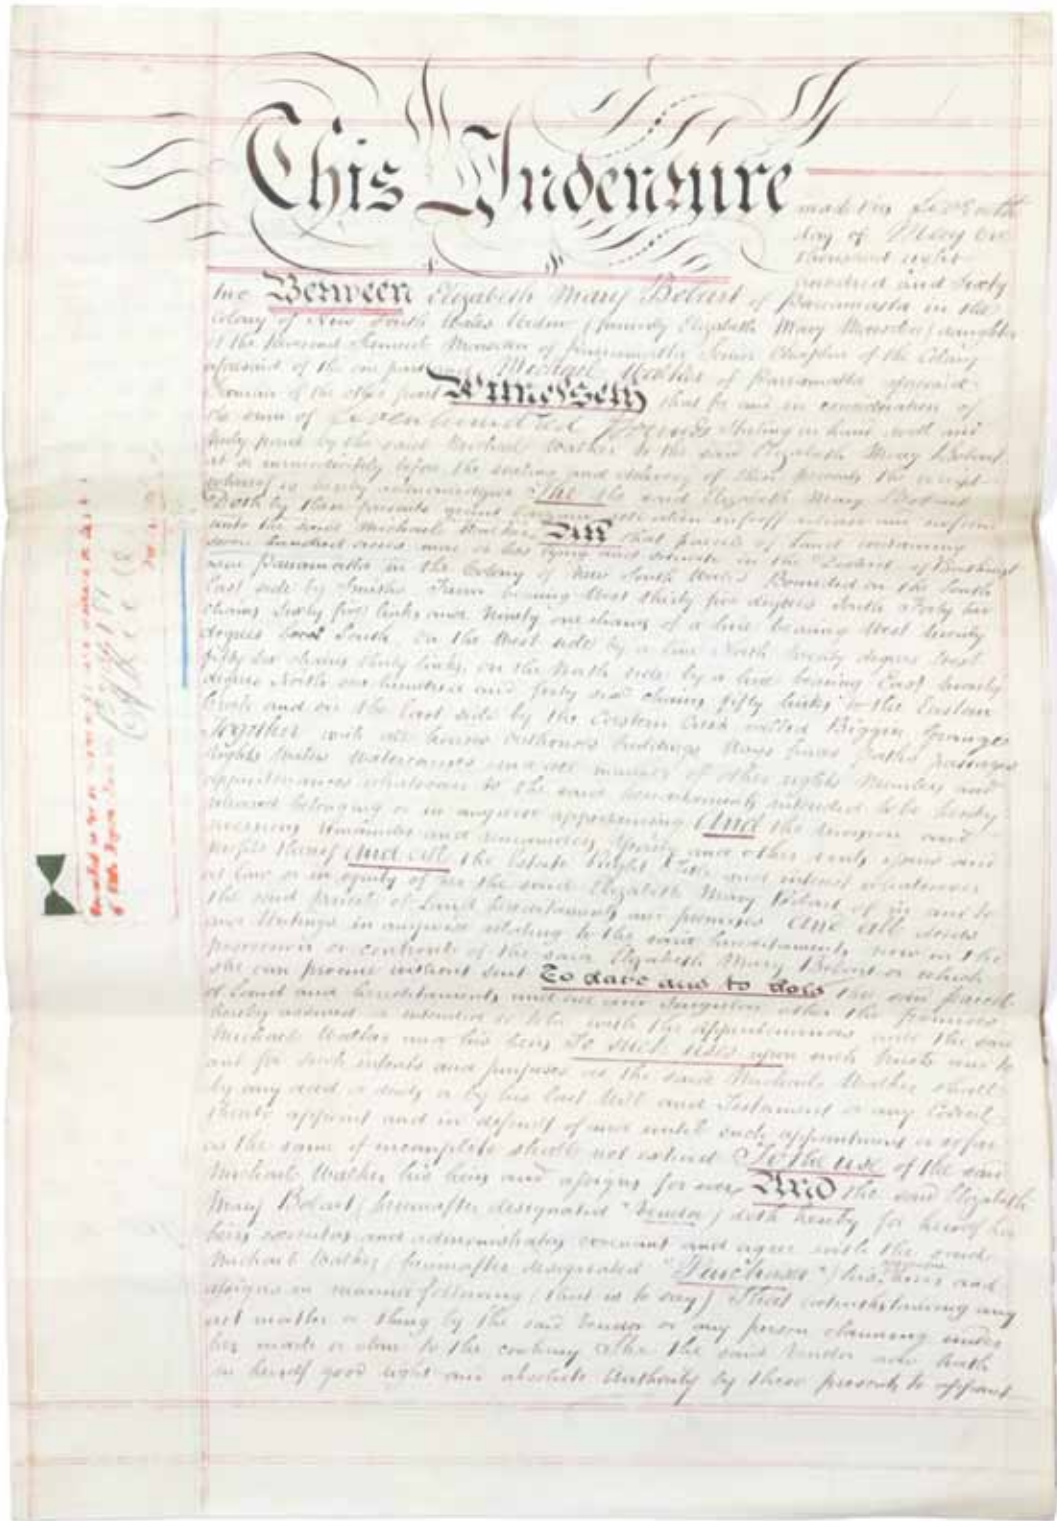 This Indenture
made this
day of May One
thousand eight
hundred and Sixty
two Between Elizabeth Mary Bobart of Parramatta in the
Colony of New South Wales Widow (formerly Elizabeth Mary Marsden) daughter
of the Reverend Samuel Marsden of Parramatta Senior Chaplain of the Colony
aforesaid of the one part and Michael Walker of Parramatta aforesaid
Yeoman of the other part Witnesseth that for and in consideration of
the sum of Seven hundred pounds Sterling in hand well and
truly paid by the said Michael Walker to the said Elizabeth Mary Bobart
at or immediately before the sealing and delivery of these presents the receipt
whereof is hereby acknowledged She the said Elizabeth Mary Bobart
Doth by these presents grant bargain sell alien enfeoff release and confirm
unto the said Michael Walker All that parcel of Land containing
seven hundred acres more or less lying and situate in the District of
near Parramatta in the Colony of New South Wales Bounded on the South
East side by Smiths Farm bearing West thirty five degrees South Forty
chains Sixty five links and Ninety one chains of a line bearing West twenty
degrees South, on the West side by a line North twenty degrees West
fifty six chains thirty links, on the North side by a line bearing East twenty
degrees North one hundred and forty chains fifty links to the Eastern
Creek and on the East side by the Eastern Creek called Biggin Grange
Together with all houses outhouses buildings ways paths passages
lights waters watercourses and all manner of other rights members and
appurtenances whatsoever to the said hereditaments intended to be hereby
released belonging or in anywise appertaining And the reversion and
reversions remainder and remainders yearly and other rents issues and
profits thereof And all the Estate Right Title and interest whatsoever
at Law or in equity of her the said Elizabeth Mary Bobart of in and to
the said parcel of Land hereditaments and premises And all deeds
and Writings in anywise relating to the said hereditaments now in the
possession or controul of the said Elizabeth Mary Bobart or which
she can procure without suit To have and to hold the said parcel
of Land and hereditaments and all and singular other the premises
hereby assured or intended so to be with the appurtenances unto the said
Michael Walker and his heirs To such uses upon such trusts and to
and for such intents and purposes as the said Michael Walker shall
by any deed or deeds or by his Last Will and Testament or any Codicil
thereto appoint and in default of and until such appointment or so far
as the same if incomplete shall not extend To the use of the said
Michael Walker his heirs and assigns for ever And the said Elizabeth
Mary Bobart (hereinafter designated "Vendor") doth hereby for herself her
heirs executors and administrators covenant and agree with the said
Michael Walker (hereinafter designated "Purchaser") his heirs and
assigns in manner following (that is to say) That notwithstanding any
act matter or thing by the said Vendor or any person claiming under
her made or done to the contrary She the said Vendor now hath
in herself good right and absolute Authority by these presents to appoint